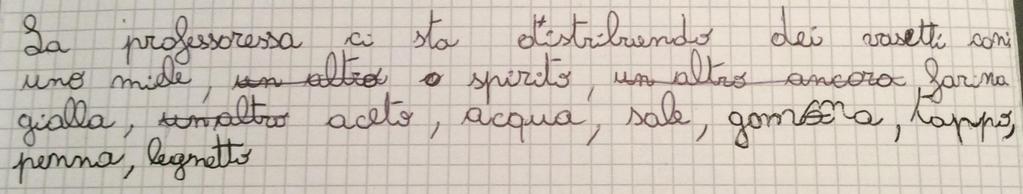 La professoressa ci sta distribuendo dei vasetti con:
uno miele, un altro o spirito, un altro ancora farina
gialla, un altro aceto, acqua, sale, gomma, tappo,
penna, legnetto